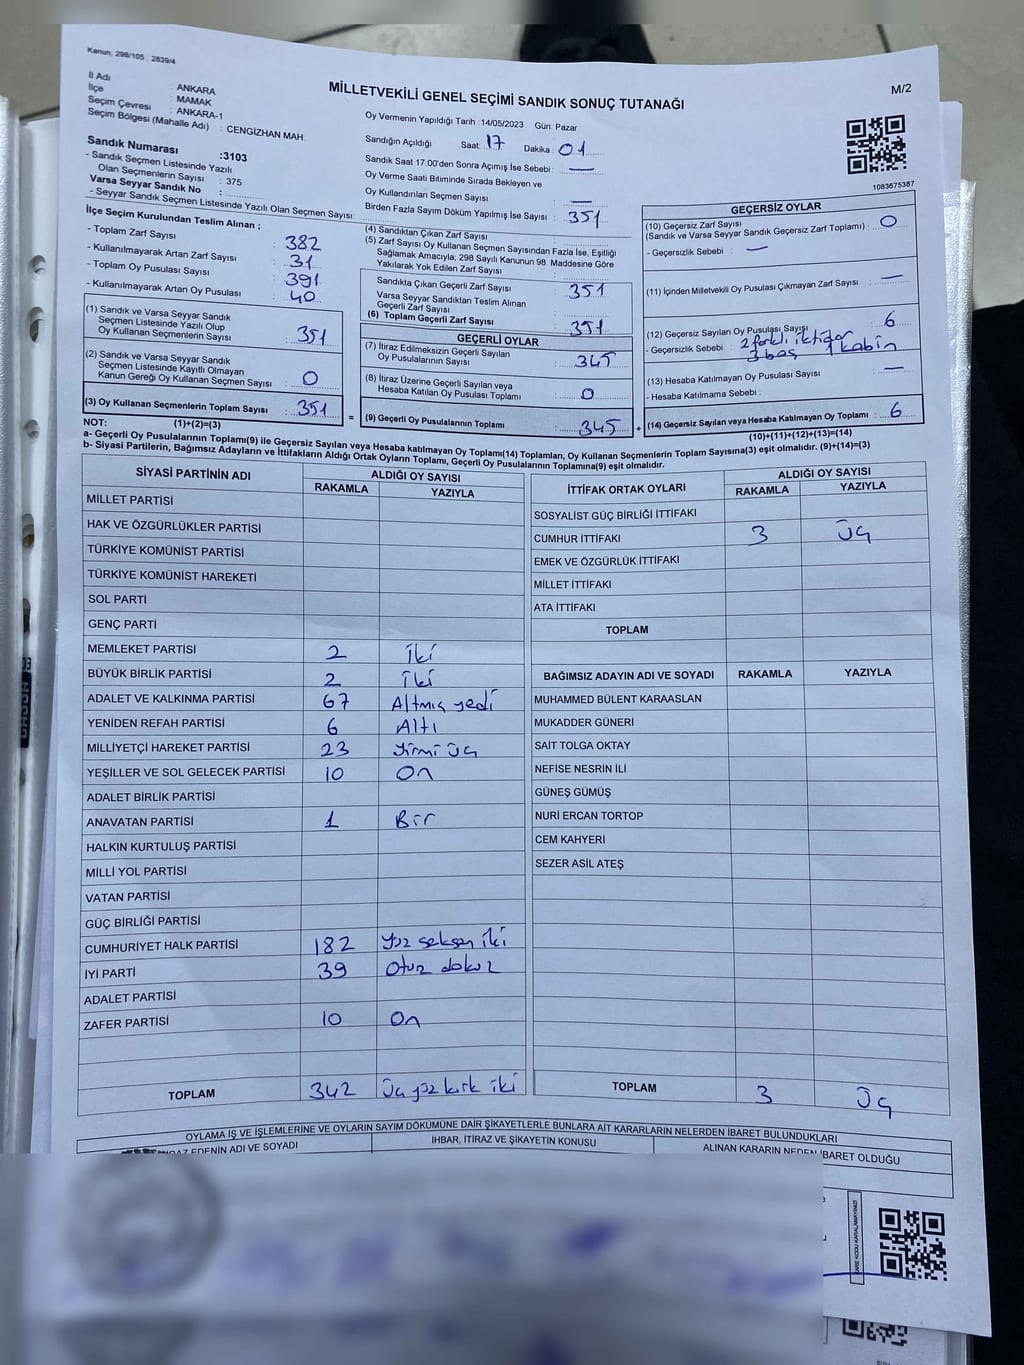 Kanun, 298/105 , 2839/4
MİLLETVEKİLİ GENEL SEÇİMİ SANDIK SONUÇ TUTANAĞI
M/2
İl Adı : ANKARA
İlçe : MAMAK
Seçim Çevresi : ANKARA-1
Seçim Bölgesi (Mahalle Adı) : CENGİZHAN MAH.
Sandık Numarası :3103
- Sandık Seçmen Listesinde Yazılı
Olan Seçmenlerin Sayısı : 375
Varsa Seyyar Sandık No :
- Seyyar Sandık Seçmen Listesinde Yazılı Olan Seçmen Sayısı:
Oy Vermenin Yapıldığı Tarih :14/05/2023 Gün: Pazar
Sandığın Açıldığı Saat: 17 Dakika : 01
Sandık Saat 17.00'den Sonra Açımış İse Sebebi : —
Oy Verme Saati Bitiminde Sırada Bekleyen ve
Oy Kullandırılan Seçmen Sayısı : —
Birden Fazla Sayım Döküm Yapılmış İse Sayısı : 351
1083675387
İlçe Seçim Kurulundan Teslim Alınan ;
- Toplam Zarf Sayısı : 382
- Kullanılmayarak Artan Zarf Sayısı : 31
- Toplam Oy Pusulası Sayısı : 391
- Kullanılmayarak Artan Oy Pusulası : 40
(1) Sandık ve Varsa Seyyar Sandık
Seçmen Listesinde Yazılı Olup
Oy Kullanan Seçmenlerin Sayısı : 351
(2) Sandık ve Varsa Seyyar Sandık
Seçmen Listesinde Kayıtlı Olmayan
Kanun Gereği Oy Kullanan Seçmen Sayısı : 0
(3) Oy Kullanan Seçmenlerin Toplam Sayısı : 351 =
(1)+(2)=(3)
(4) Sandıktan Çıkan Zarf Sayısı :
(5) Zarf Sayısı Oy Kullanan Seçmen Sayısından Fazla İse, Eşitliği
Sağlamak Amacıyla; 298 Sayılı Kanunun 98. Maddesine Göre
Yakılarak Yok Edilen Zarf Sayısı :
Sandıkta Çıkan Geçerli Zarf Sayısı : 351
Varsa Seyyar Sandıktan Teslim Alınan
Geçerli Zarf Sayısı :
(6) Toplam Geçerli Zarf Sayısı : 351
GEÇERLİ OYLAR
(7) İtiraz Edilmeksizin Geçerli Sayılan
Oy Pusulasının Sayısı : 345
(8) İtiraz Üzerine Geçerli Sayılan veya
Hesaba Katılan Oy Pusulası Toplamı : 0
(9) Geçerli Oy Pusulalarının Toplamı : 345 +
GEÇERSİZ OYLAR
(10) Geçersiz Zarf Sayısı
(Sandık ve Varsa Seyyar Sandık Geçersiz Zarf Toplamı) : 0
- Geçersizlik Sebebi : —
(11) İçinden Milletvekili Oy Pusulası Çıkmayan Zarf Sayısı : —
(12) Geçersiz Sayılan Oy Pusulası Sayısı : 6
- Geçersizlik Sebebi : 2 farklı
3 boş 1 kabin
(13) Hesaba Katılmayan Oy Pusulası Sayısı : —
- Hesaba Katılmama Sebebi :
(14) Geçersiz Sayılan veya Hesaba Katılmayan Oy Toplamı : 6
(10)+(11)+(12)+(13)=(14)
NOT:
a- Geçerli Oy Pusulalarının Toplamı(9) ile Geçersiz Sayılan veya Hesaba katılmayan Oy Toplamı(14) Toplamları, Oy Kullanan Seçmenlerin Toplam Sayısına(3) eşit olmalıdır. (9)+(14)=(3)
b- Siyasi Partilerin, Bağımsız Adayların ve İttifakların Aldığı Ortak Oyların Toplamı, Geçerli Oy Pusulalarının Toplamına(9) eşit olmalıdır.
SİYASİ PARTİNİN ADI ALDIĞI OY SAYISI
RAKAMLA YAZIYLA
MİLLET PARTİSİ
HAK VE ÖZGÜRLÜKLER PARTİSİ
TÜRKİYE KOMÜNİST PARTİSİ
TÜRKİYE KOMÜNİST HAREKETİ
SOL PARTİ
GENÇ PARTİ
MEMLEKET PARTİSİ 2 iki
BÜYÜK BİRLİK PARTİSİ 2 iki
ADALET VE KALKINMA PARTİSİ 67 Altmış yedi
YENİDEN REFAH PARTİSİ 6 Altı
MİLLİYETÇİ HAREKET PARTİSİ 23 Yirmi üç
YEŞİLLER VE SOL GELECEK PARTİSİ 10 On
ADALET BİRLİK PARTİSİ
ANAVATAN PARTİSİ 1 Bir
HALKIN KURTULUŞ PARTİSİ
MİLLİ YOL PARTİSİ
VATAN PARTİSİ
GÜÇ BİRLİĞİ PARTİSİ
CUMHURİYET HALK PARTİSİ 182 Yüz seksen iki
İYİ PARTİ 39 Otuz dokuz
ADALET PARTİSİ
ZAFER PARTİSİ 10 On
TOPLAM 342 Üç yüz kırk iki
İTTİFAK ORTAK OYLARI ALDIĞI OY SAYISI
RAKAMLA YAZIYLA
SOSYALİST GÜÇ BİRLİĞİ İTTİFAKI
CUMHUR İTTİFAKI 3 Üç
EMEK VE ÖZGÜRLÜK İTTİFAKI
MİLLET İTTİFAKI
ATA İTTİFAKI
TOPLAM
BAĞIMSIZ ADAYIN ADI VE SOYADI RAKAMLA YAZIYLA
MUHAMMED BÜLENT KARAASLAN
MUKADDER GÜNERİ
SAİT TOLGA OKTAY
NEFİSE NESRİN İLİ
GÜNEŞ GÜMÜŞ
NURİ ERCAN TORTOP
CEM KAHYERİ
SEZER ASİL ATEŞ
TOPLAM 3 Üç
OYLAMA İŞ VE İŞLEMLERİNE VE OYLARIN SAYIM DÖKÜMÜNE DAİR ŞİKAYETLERLE BUNLARA AİT KARARLARIN NELERDEN İBARET BULUNDUKLARI
EDENİN ADI VE SOYADI İHBAR, İTİRAZ VE ŞİKAYETİN KONUSU ALINAN KARARIN NEDEN İBARET OLDUĞU